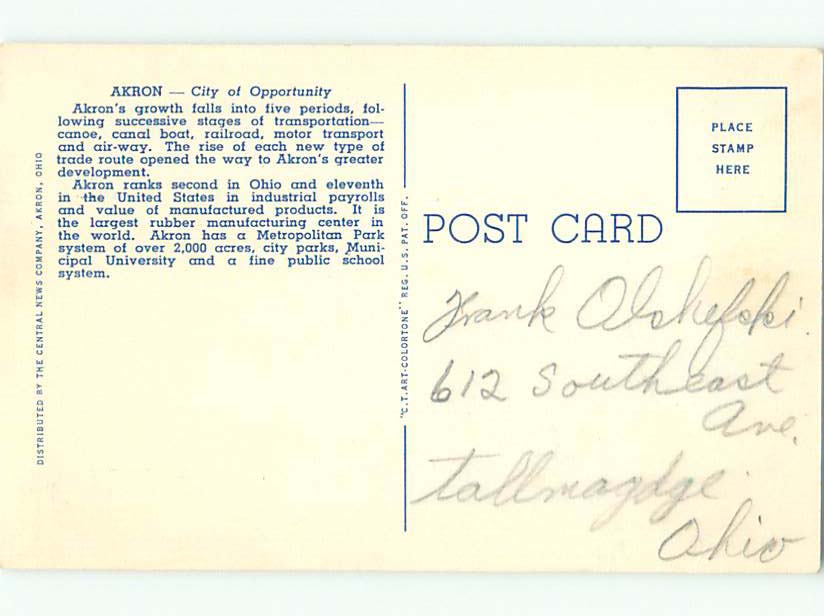 AKRON — City of Opportunity
Akron's growth falls into five periods, fol-
lowing successive stages of transportation—
canoe, canal boat, railroad, motor transport
and air-way. The rise of each new type of
trade route opened the way to Akron's greater
development.
Akron ranks second in Ohio and eleventh
in the United States in industrial payrolls
and value of manufactured products. It is
the largest rubber manufacturing center in
the world. Akron has a Metropolitan Park
system of over 2,000 acres, city parks, Muni-
cipal University and a fine public school
system.
DISTRIBUTED BY THE CENTRAL NEWS COMPANY, AKRON, OHIO
"C.T. ART-COLORTONE" REG. U.S. PAT. OFF.
PLACE
STAMP
HERE
POST CARD
Frank Olshefski
612 Southeast
Ave.
Tallmagdge
Ohio